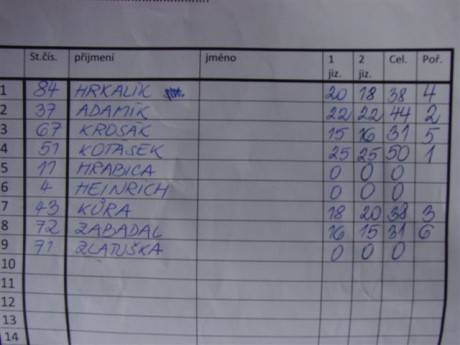 St.čís. příjmení jméno 1 jiz. 2 jiz. Cel. Poř.
1 84 HRKALÍK 20 18 38 4
2 37 ADAMÍK 22 22 44 2
3 67 KROSÁK 15 16 31 5
4 51 KOTASEK 25 25 50 1
5 11 HRABICA 0 0 0
6 4 HEINRICH 0 0 0
7 43 KŮRA 18 20 38 3
8 72 ZABADAL 16 15 31 6
9 71 ZLATUŠKA 0 0 0
10
11
12
13
14